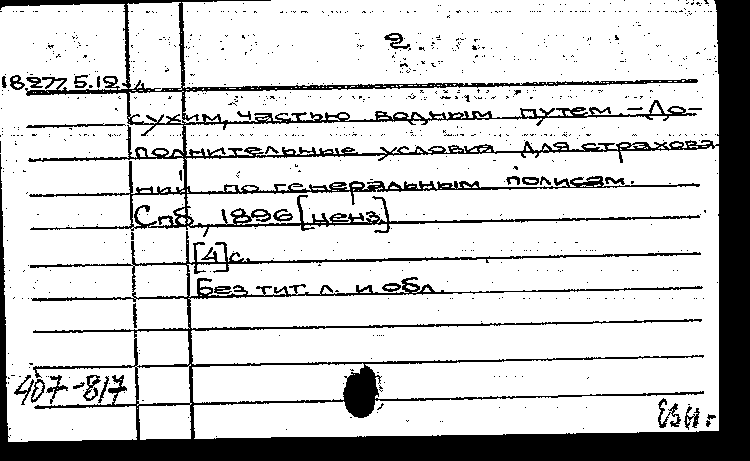 2
18.277.5.12
сухим, частью водным путем. – До-
полнительные условия для страхова-
ний по генеральным полисам.
Спб., 1896 [ценз]
[4] с.
Без тит. л. и обл.
407-817